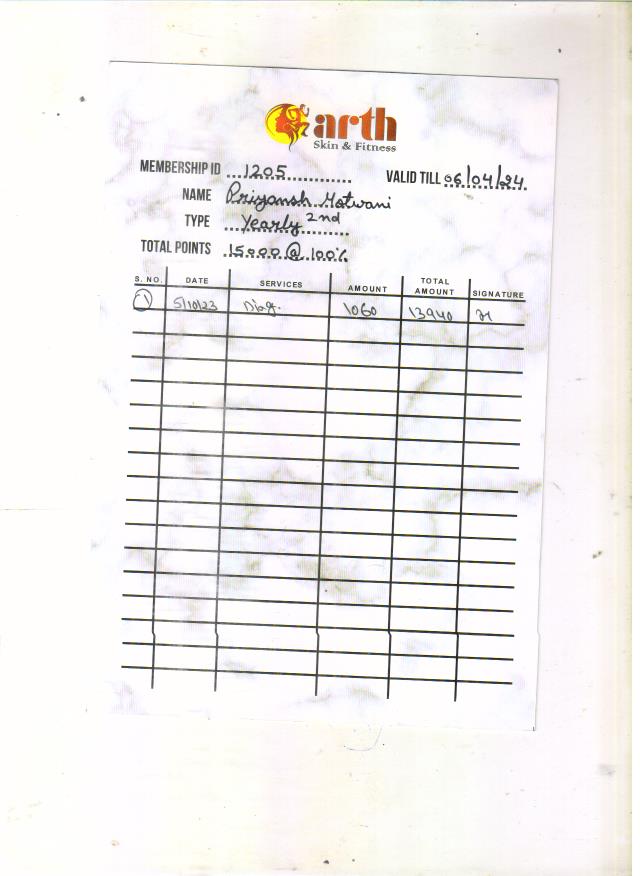 arth
Skin & Fitness
MEMBERSHIP ID 1205 VALID TILL 06/04/24
NAME Priyansh Motwani
TYPE Yearly 2nd
TOTAL POINTS 15000 @ 100%
S. NO. DATE SERVICES AMOUNT TOTAL AMOUNT SIGNATURE
1 5/10/23 Diag. 1060 13940